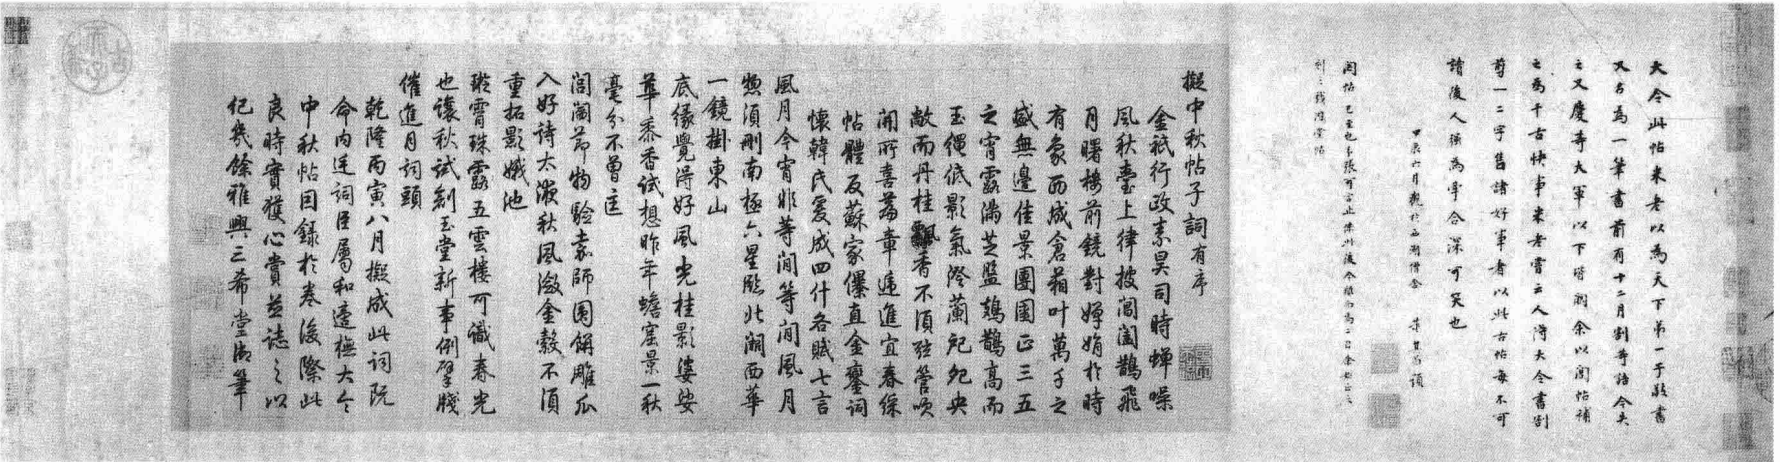 大令此帖米老以為天下第一子敬書
又名為一筆書前有十二月割等語今失
之又慶等大軍以下皆闕余以閣帖補
之為千古快事米老嘗云人得大令書割
剪一二字售諸好事者以此古帖每不可
讀後人強為牽合深可笑也
甲辰六月觀於西湖僧舍 董其昌題
擬中秋帖子詞有序
金祇行政素昊司時蟬噪
風秋臺上律披閶闔鵲飛
月曙樓前鏡對嬋娟於時
有象西成倉箱叶萬千之
盛無邊佳景團圞正三五
之宵露滿芝盤鳷鵲高而
玉繩低影氣澄蘭杞央
敞而丹桂飄香不須弦管吹
開所喜篇章遞進宜春綵
帖體反蘇家儤直金鑾詞
懷韓氏爰成四什各賦七言
風月今宵非等閒等閒風月
總須刪南極六星臨北湖西華
一鏡掛東山
底緣覺得好風光桂影婆娑
華黍香試想昨年蟾窟景一秋
毫分不曾
閶闔節物驗嘉師圍餅雕瓜
入好詩太液秋風激金縠不須
重拓影娥池
璇霄珠露五雲樓可識春光
也讓秋試創玉堂新事例擘牋
催進月詞頭
乾隆丙寅八月擬成此詞既
命內廷詞臣屬和適橅大令
中秋帖因錄於卷後際此
良時實獲心賞並誌之以
紀幾餘雅興三希堂御筆